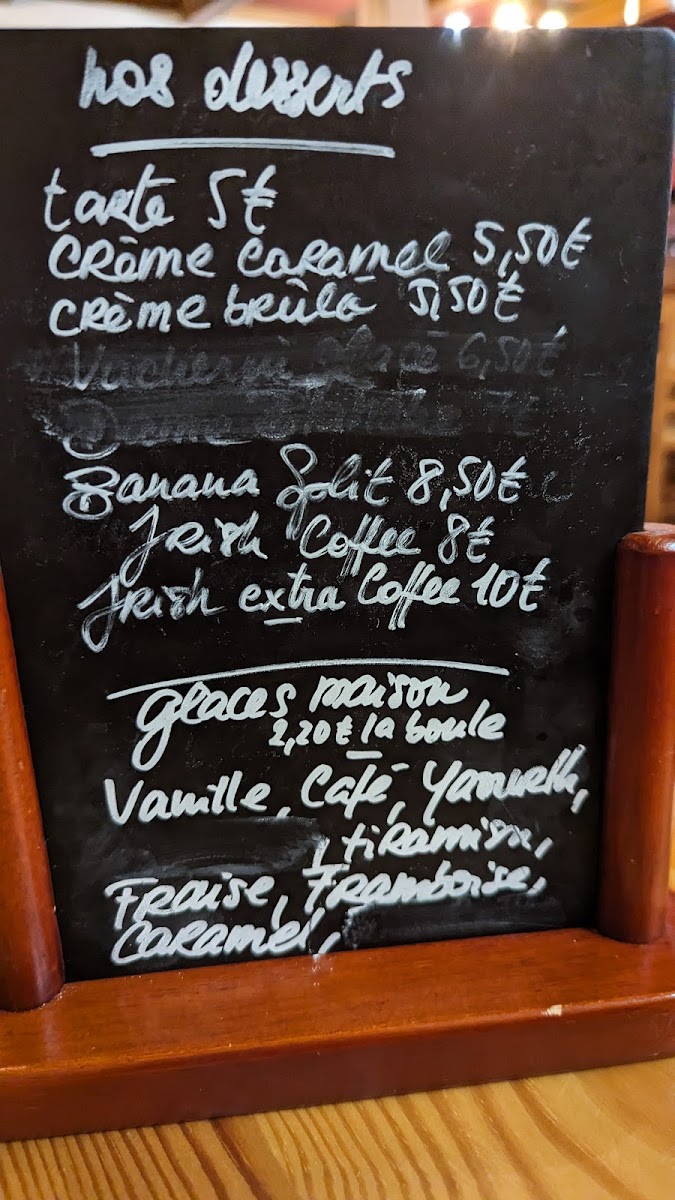 nos desserts
tarte 5€
crème caramel 5,50€
crème brûla 5,50€
Vacherin glacé 6,50€
Banana Split 8,50€
Irish Coffee 8€
Irish extra Coffee 10€
glaces maison
2,20€ la boule
Vanille, Café, Yaourth,
, tiramisu,
Fraise, Framboise,
Caramel,